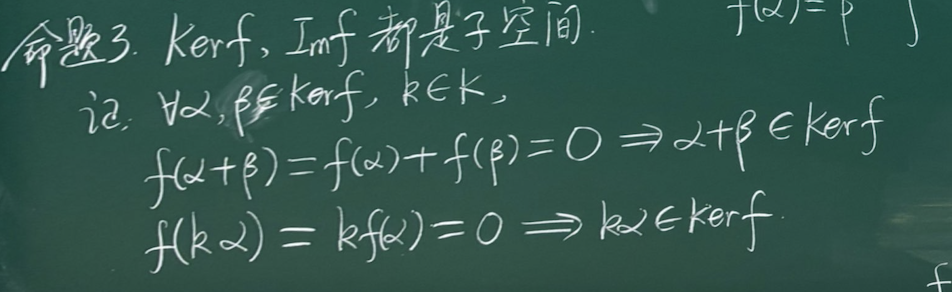 命题3. Kerf, Imf 都是子空间.
f(α)=β }
证: ∀α,β∈Kerf, k∈K,
f(α+β)=f(α)+f(β)=0⇒α+β∈Kerf
f(kα)=kf(α)=0⇒kα∈Kerf.
f